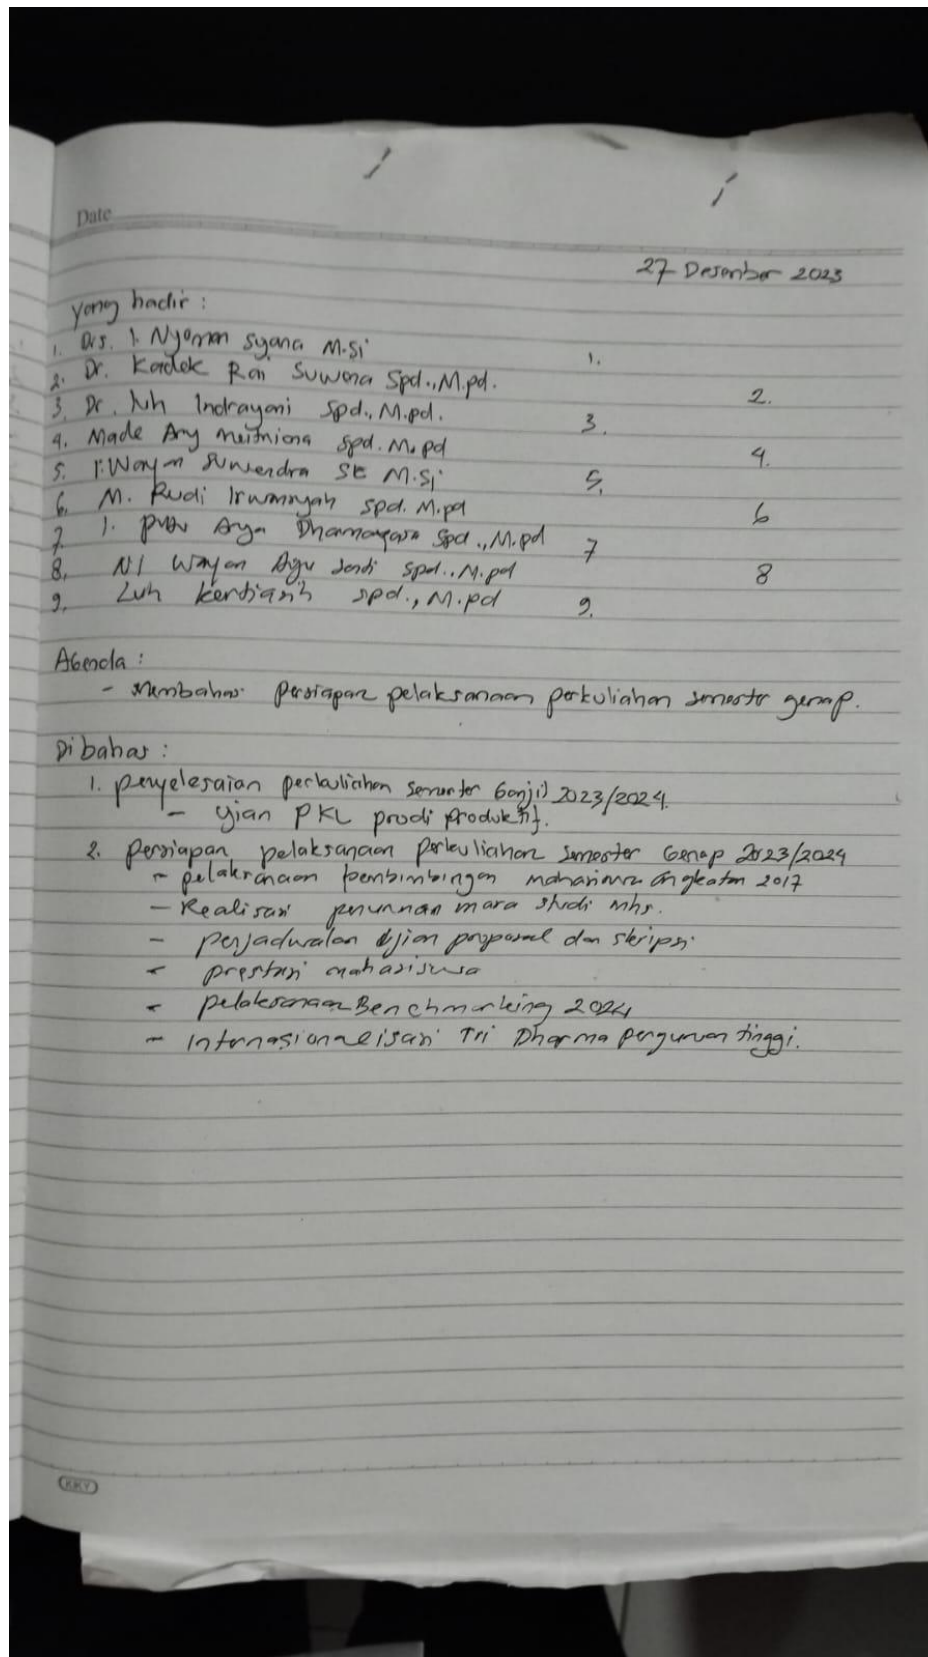 Date
27 Desember 2023
yang hadir :
1. Drs. I. Nyoman Syana M.Si 1.
2. Dr. Kadek Rai Suwena Spd., M.pd. 2.
3. Dr. Luh Indrayani Spd., M.pd. 3.
4. Made Ary Meitriana Spd. M.pd 4.
5. I. Wayan Suwendra SE M.Si 5.
6. M. Rudi Irwansyah spd. M.pd 6
7. I. Putu Arya Dharmayasa Spd., M.pd 7
8. NI Wayan Ayu Santi spd., M.pd 8
9. Luh Kertiasih spd., M.pd 9.
Agenda :
- Membahas persiapan pelaksanaan perkuliahan semester genap.
Dibahas :
1. penyelesaian perkuliahan Semester Ganjil 2023/2024.
- Ujian PKL prodi produktif.
2. Persiapan pelaksanaan perkuliahan Semester Genap 2023/2024
- pelaksanaan pembimbingan mahasiswa angkatan 2017
- Realisasi penurunan masa studi mhs.
- perjadwalan Ujian proposal dan skripsi
- prestasi mahasiswa
- pelaksanaan Benchmarking 2024
- Internasionalisasi Tri Dharma perguruan tinggi.
KKY